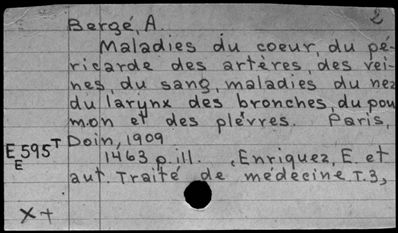 2
Bergé, A.
Maladies du coeur, du pé-
ricarde des artères, des vei-
nes, du sang, maladies du nez
du larynx des bronches, du pou
mon et des plévres. Paris,
E595T Doin, 1909
E
1463 p. ill. (Enriquez, E. et
aut. Traité de médecine T.3,
X+